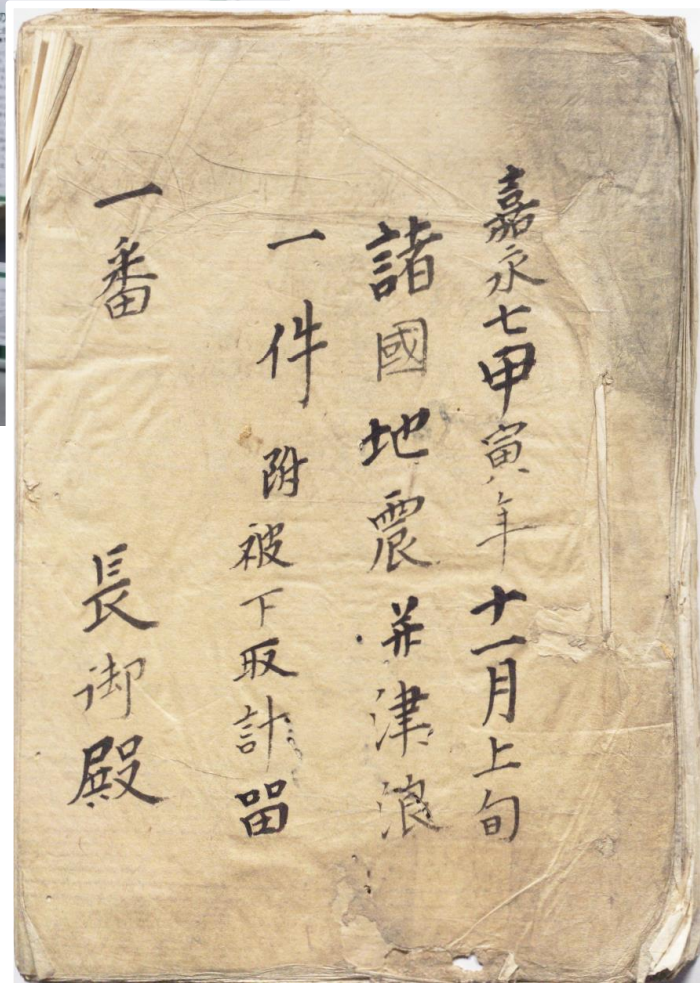 嘉永七甲寅年十一月上旬
諸國地震并津浪
一件 附被下取計留
一番 長御殿